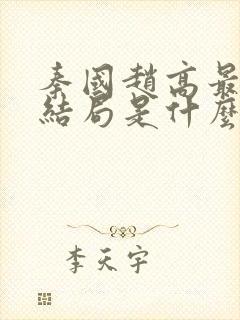 秦國趙高最
結局是什麼
李天宇